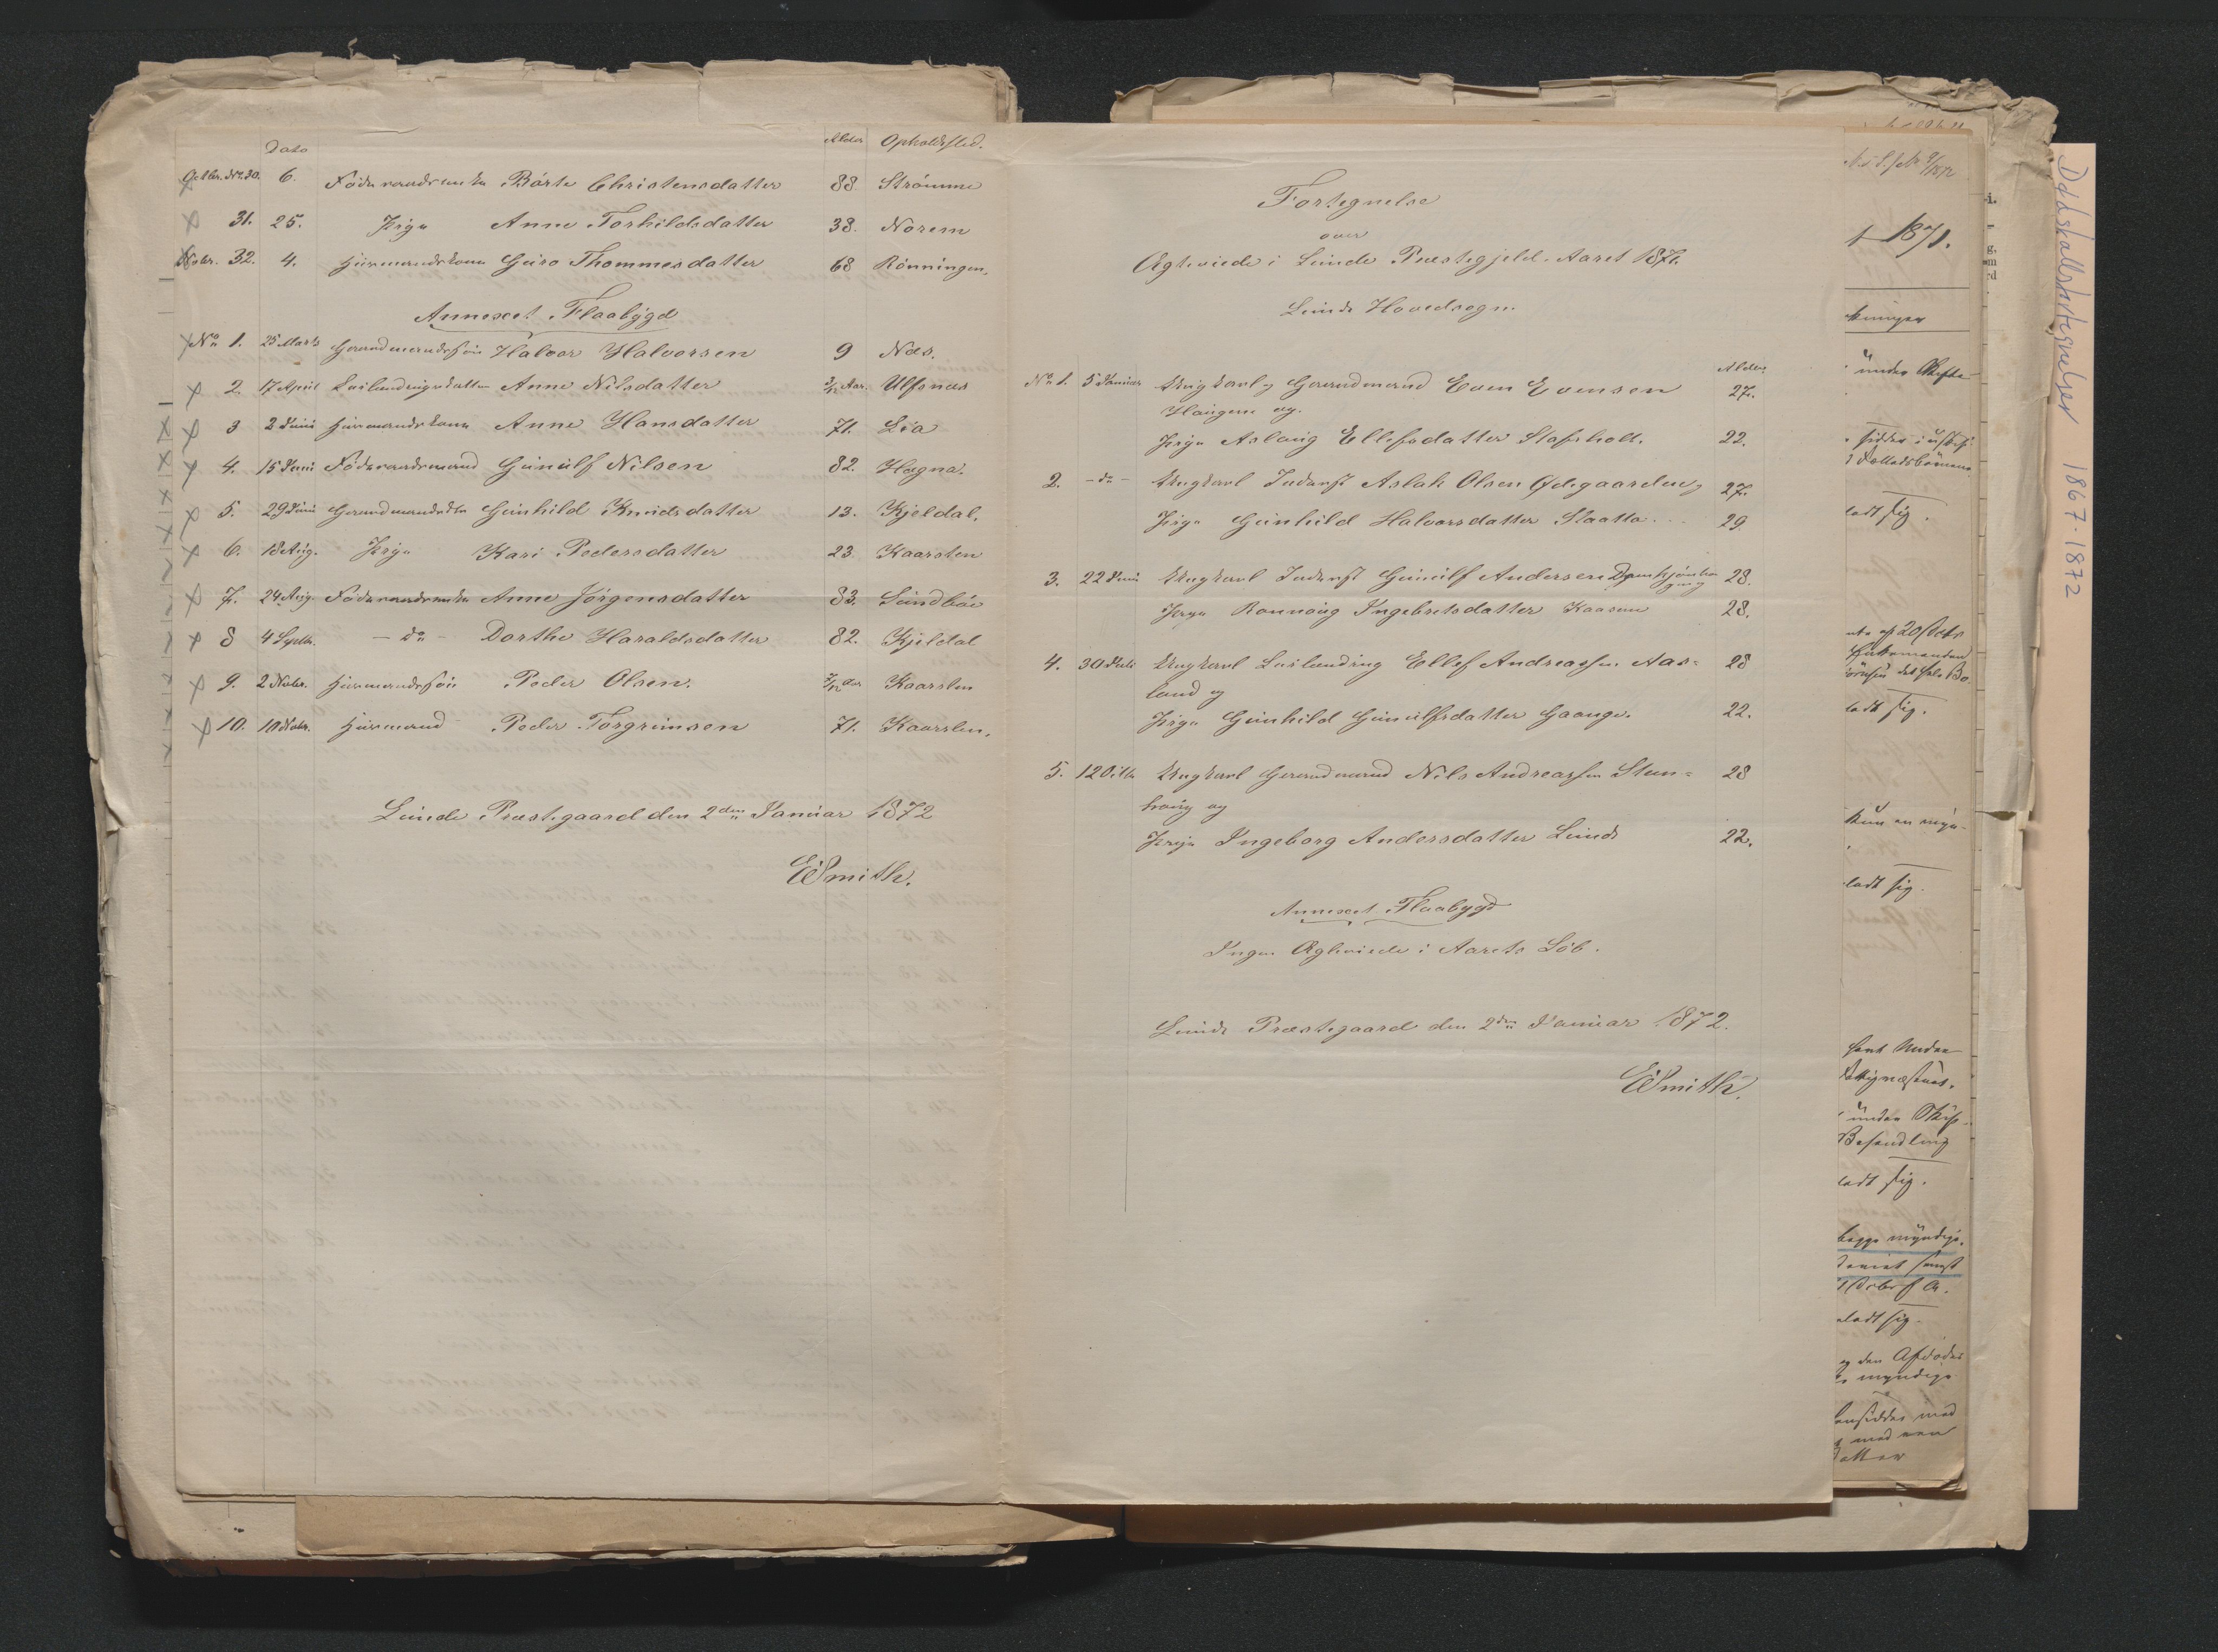 Dato Alder Opholdssted.
Octbr. No. 30. 6. Föderaadsenke Börte Christensdatter 88. Strömme
31. 25. Pige Anne Torhildsdatter 38. Norem
Nvbr. 32. 4. Huusmandskone Guro Thommesdatter 68 Rönningen.
Annexet Flaabygd
No 1. 25 Marts Gaardmandssön Halvor Halvorsen 9 Næs.
2. 17 April Leilændings datter Anne Nilsdatter 3/12 Aar. Ulfsnæs
3 2 Juni Huusmandskone Anne Hansdatter 71. Lia
4. 15 Juni Föderaadsmand Gunulf Nilsen 82. Hagna.
5. 29 Juni Gaardmandsdtr Gunhild Knudsdatter 13. Kjeldal.
6. 18 Aug. Pige Kari Pedersdatter 23. Kaarsten
7. 24 Aug. Föderaadsenke Anne Jörgensdatter 83. Sundböe
8 4 Septb. - do - Dorthe Haraldsdatter 82. Kjeldal
9. 2 Nvbr. Huusmandssön Peder Olsen. 7/12 Aar Kaarsten
10. 10 Nvbr. Huusmand Peder Torgrimsen 71. Kaarsten.
Lunde Præstegaard den 2den Januar 1872
E Smith.
Fortegnelse
over
Ægteviede i Lunde Præstegjeld. Aaret 1871.
Lunde Hovedsogn.
Alder.
No 1. 5 Januar Ungkarl, Gaardmand Even Evensen 27.
Haugene og.
Pige Aslaug Ellefsdatter Stafsholt. 22.
2. - do - Ungkarl Inderst Aslak Olsen Ødegaarden og 27.
Pige Gunhild Halvorsdatter Slaatta 29
3. 22 Juni Ungkarl Inderst Gunulf Andersen 28.
Pige Rannoug Ingebretsdatter Kaasene 28.
4. 30 Juli Ungkarl Leilænding Ellef Andreassen Aas= 28
land og
Pige Gunhild Gunulfsdatter Gaange. 22.
5. 12 Octb. Ungkarl Gaardmand Nils Andreassen Sten= 28
houg og
Pige Ingeborg Andersdatter Lunde 22.
Annexet Flaabygd
Ingen Ægteviede i Aarets Löb.
Lunde Præstegaard den 2den Januar 1872.
E Smith.
1871.
under Skifte
ladt sig.
ladt sig.
Kun en myn-
ladt sig.
under Skifte
Behandling
ladt sig.
begge myndige.
ladt sig.
og den Afdödes
myndige
hensidder med
med een
Datter
Dødsfallsfortegnelser 1867-1872